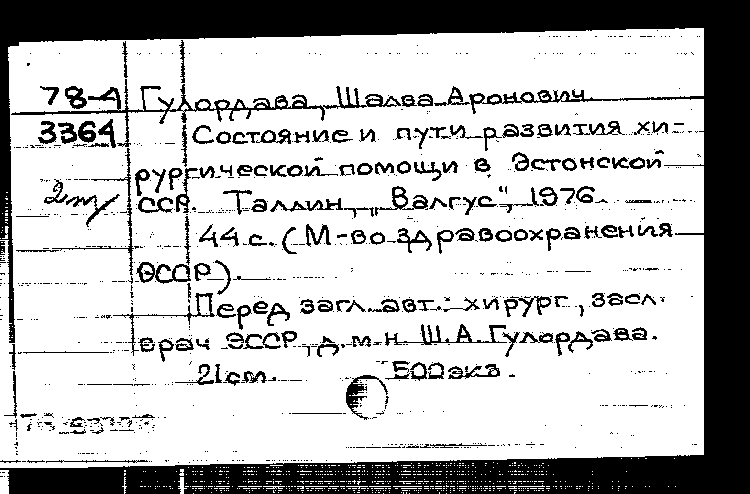 78-4 Гулордава, Шалва Аронович.
3364 Состояние и пути развития хи-
рургической помощи в Эстонской
ССР. Таллин, „Валгус", 1976.
44 с. (М-во здравоохранения
ЭССР).
Перед загл. авт.: хирург, засл.
врач ЭССР, д.м.н. Ш.А. Гулордава.
21 см. 500 экз.